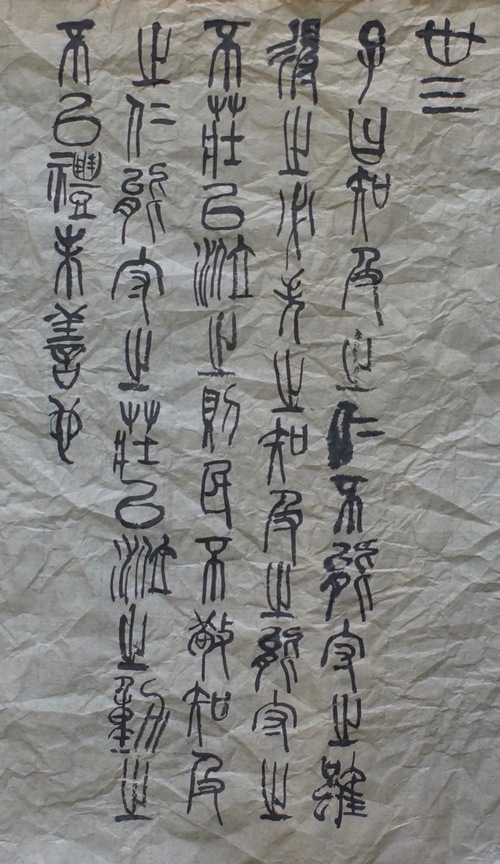 卅三
子曰知及之仁不能守之雖
得之必失之知及之能守之
不莊以涖之則民不敬知及
之仁能守之莊以涖之動之
不以禮未善也